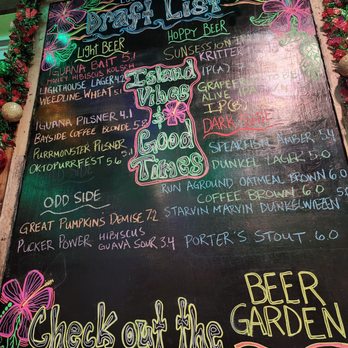 Draft List
Light Beer
Iguana Bait 5.1
Honey Hibiscus Kolsch
Lighthouse Lager 4.2
Weedline Wheat 5.1
Iguana Pilsner 4.1
Bayside Coffee Blonde 5.8
Purrmonster Pilsner 5.1
Oktopurrfest 5.6
Odd Side
Great Pumpkins Demise 7.2
Pucker Power Hibiscus
Guava Sour 3.4
Island
Vibes
&
Good
Times
Hoppy Beer
Sunsession
Kritter
IP(A)
IP(B)
Dark
Speakfish Amber 5.4
Dunkel Lager 5.0
Run Aground Oatmeal Brown 6.0
Coffee Brown 6.0
Starvin Marvin Dunkelwiezen
Porter's Stout 6.0
Check out the
Beer
Garden